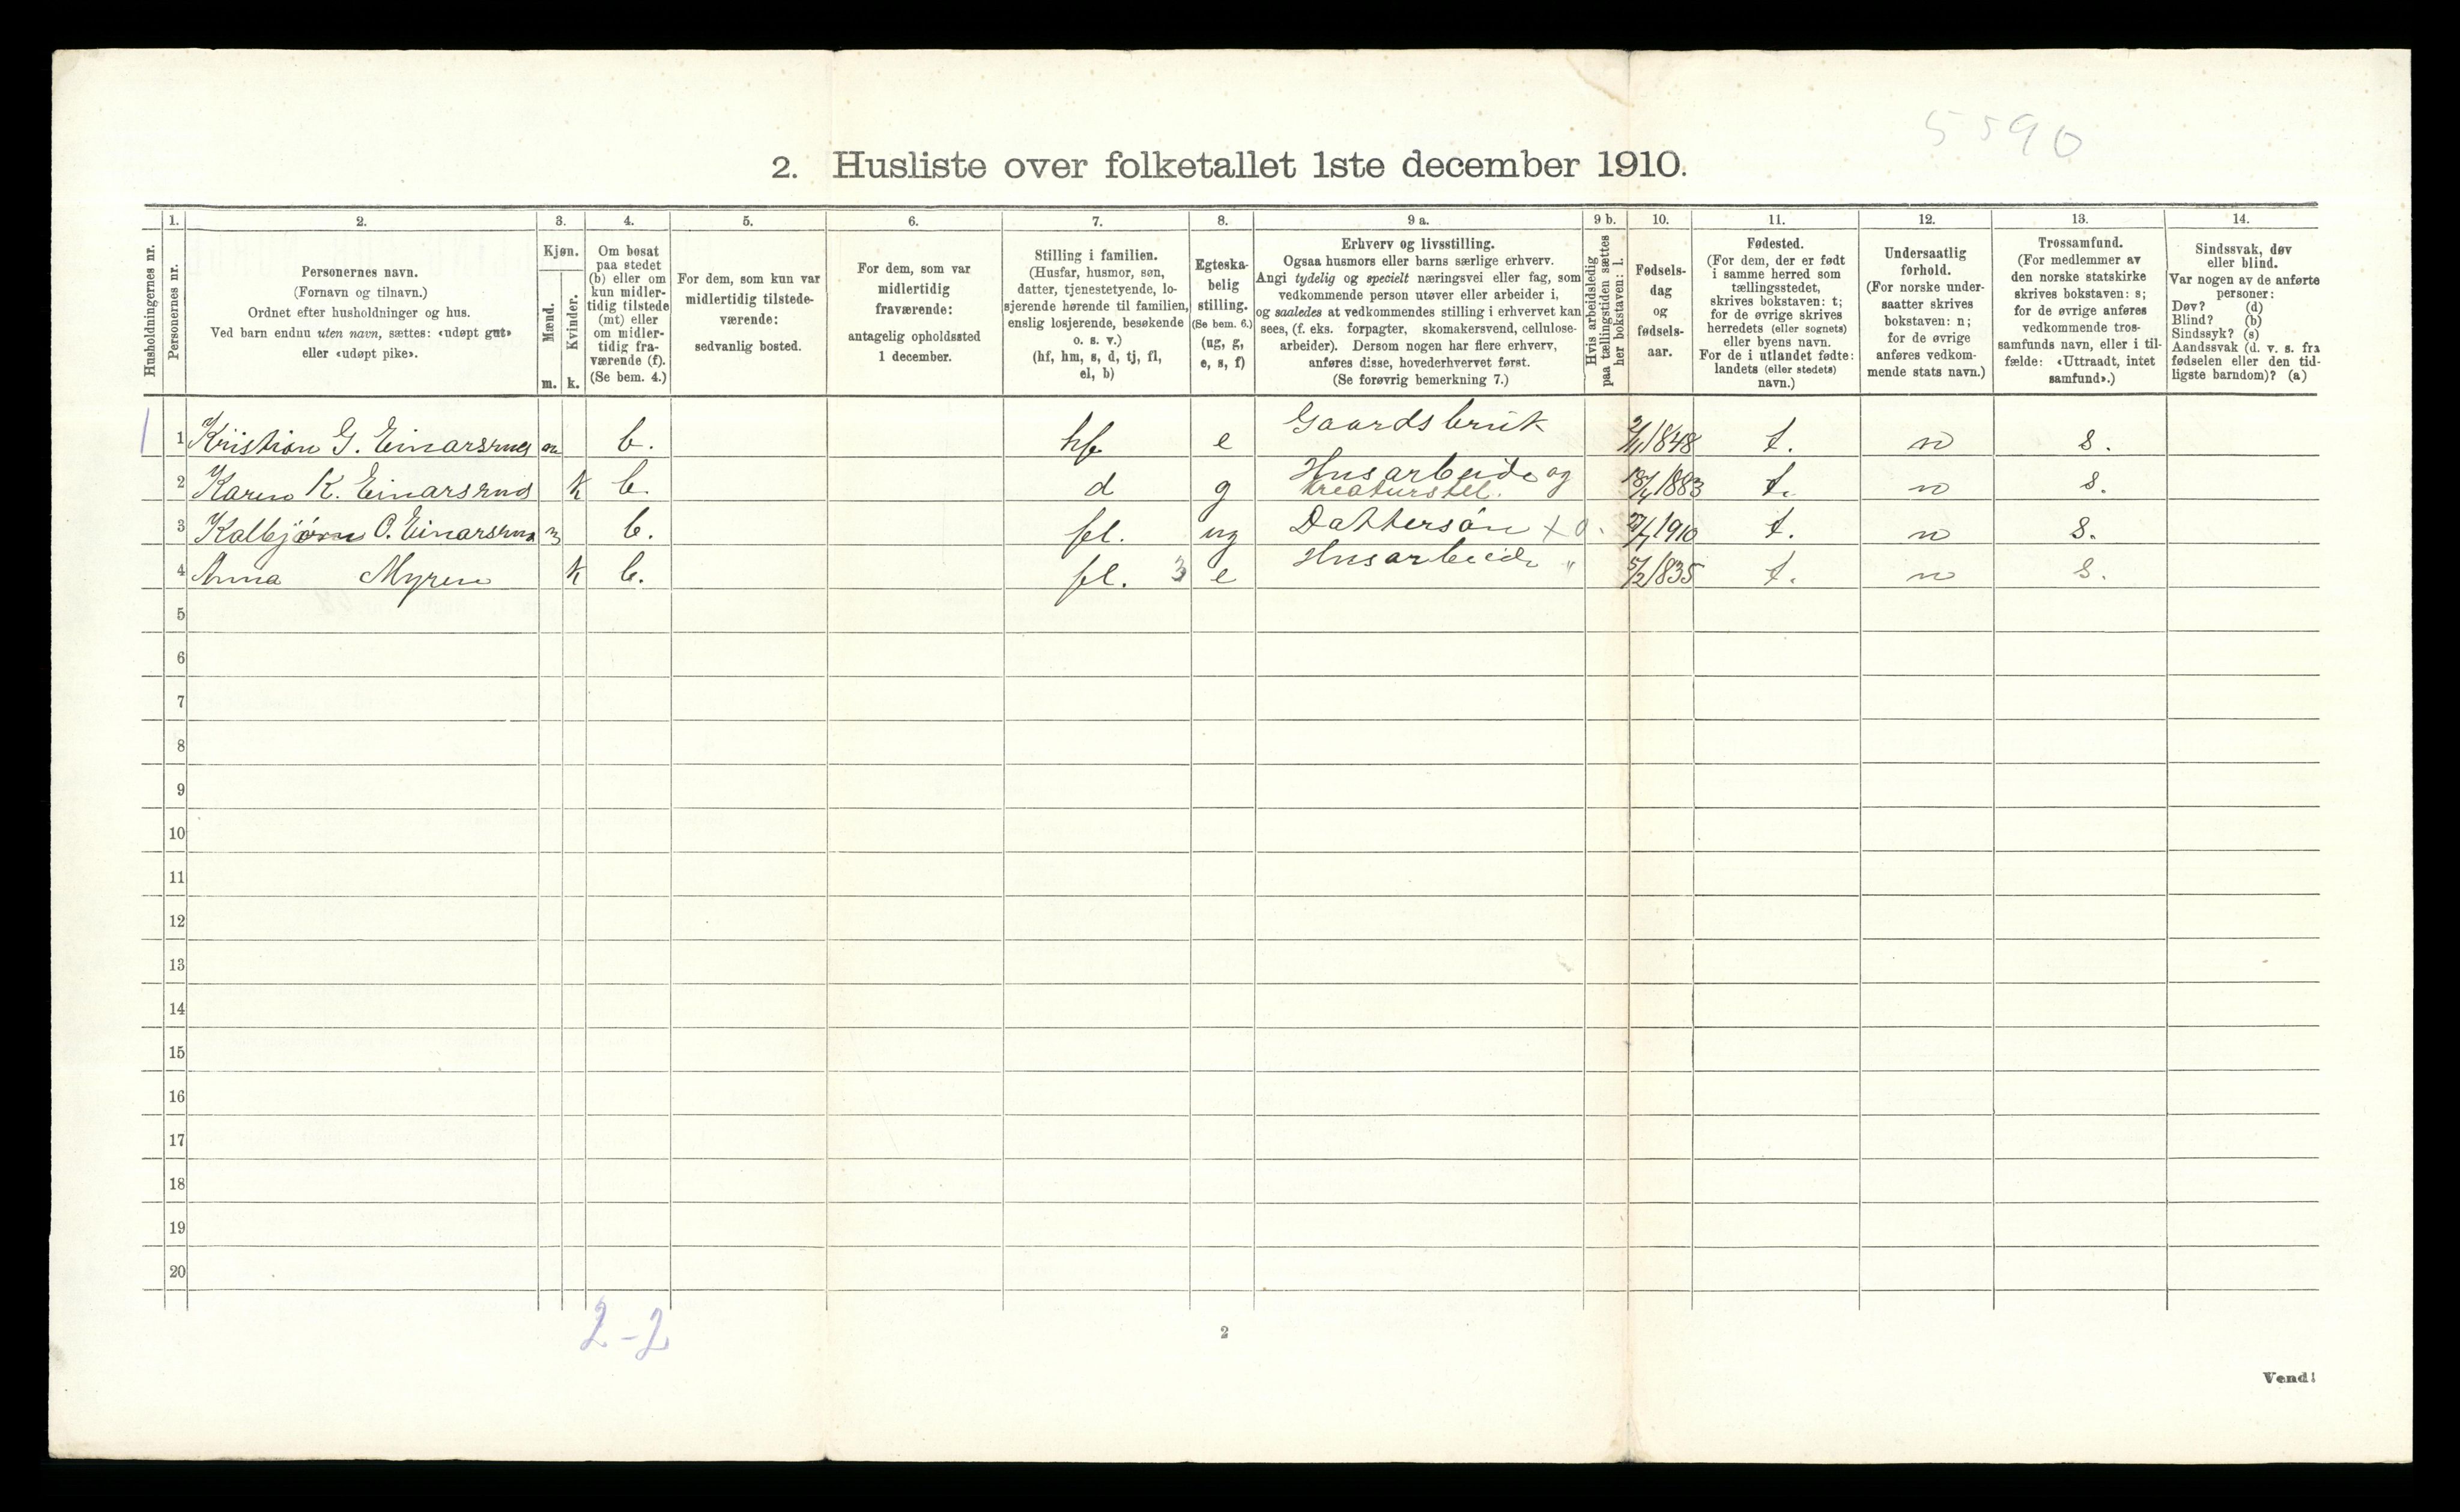 5590
2. Husliste over folketallet 1ste december 1910.
Husholdningernes nr.
1.
Personernes nr.
2.
Personernes navn.
(Fornavn og tilnavn.)
Ordnet efter husholdninger og hus.
Ved barn endnu uten navn, sættes: «udøpt gut»
eller «udøpt pike».
3.
Kjøn.
Mænd.
Kvinder.
m. k.
4.
Om bosat
paa stedet
(b) eller om
kun midler-
tidig tilstede
(mt) eller
om midler-
tidig fra-
værende (f).
(Se bem. 4.)
5.
For dem, som kun var
midlertidig tilstede-
værende:
sedvanlig bosted.
6.
For dem, som var
midlertidig
fraværende:
antagelig opholdssted
1 december.
7.
Stilling i familien.
(Husfar, husmor, søn,
datter, tjenestetyende, lo-
sjerende hørende til familien,
enslig losjerende, besøkende
o. s. v.)
(hf, hm, s, d, tj, fl,
el, b)
8.
Egteska-
belig
stilling.
(Se bem. 6.)
(ug, g,
e, s, f)
9 a.
Erhverv og livsstilling.
Ogsaa husmors eller barns særlige erhverv.
Angi tydelig og specielt næringsvei eller fag, som
vedkommende person utøver eller arbeider i,
og saaledes at vedkommendes stilling i erhvervet kan
sees, (f. eks. forpagter, skomakersvend, cellulose-
arbeider). Dersom nogen har flere erhverv,
anføres disse, hovederhvervet først.
(Se forøvrig bemerkning 7.)
9 b.
Hvis arbeidsledig
paa tællingstiden sættes
her bokstaven: l.
10.
Fødsels-
dag
og
fødsels-
aar.
11.
Fødested.
(For dem, der er født
i samme herred som
tællingsstedet,
skrives bokstaven: t;
for de øvrige skrives
herredets (eller sognets)
eller byens navn.
For de i utlandet fødte:
landets (eller stedets)
navn.)
12.
Undersaatlig
forhold.
(For norske under-
saatter skrives
bokstaven: n;
for de øvrige
anføres vedkom-
mende stats navn.)
13.
Trossamfund.
(For medlemmer av
den norske statskirke
skrives bokstaven: s;
for de øvrige anføres
vedkommende tros-
samfunds navn, eller i til-
fælde: «Uttraadt, intet
samfund».)
14.
Sindssvak, døv
eller blind.
Var nogen av de anførte
personer:
Døv? (d)
Blind? (b)
Sindssyk? (s)
Aandssvak (d. v. s. fra
fødselen eller den tid-
ligste barndom)? (a)
1 1 Kristian G. Einarsrud m b. hf. e Gaardsbruk 2/11 1848 t. n s.
2 Karen K. Einarsrud k b. d g Husarbeide og kreaturstel. 18/4 1883 t. n s.
3 Kalbjørn O. Einarsrud m b. fl. ug Dattersön x 0. 1910 t. n s.
4 Anna Myren k b. fl. 3 e Husarbeide " 5/2 1835 t. n s.
5
6
7
8
9
10
11
12
13
14
15
16
17
18
19
20
2-2
2
Vend!